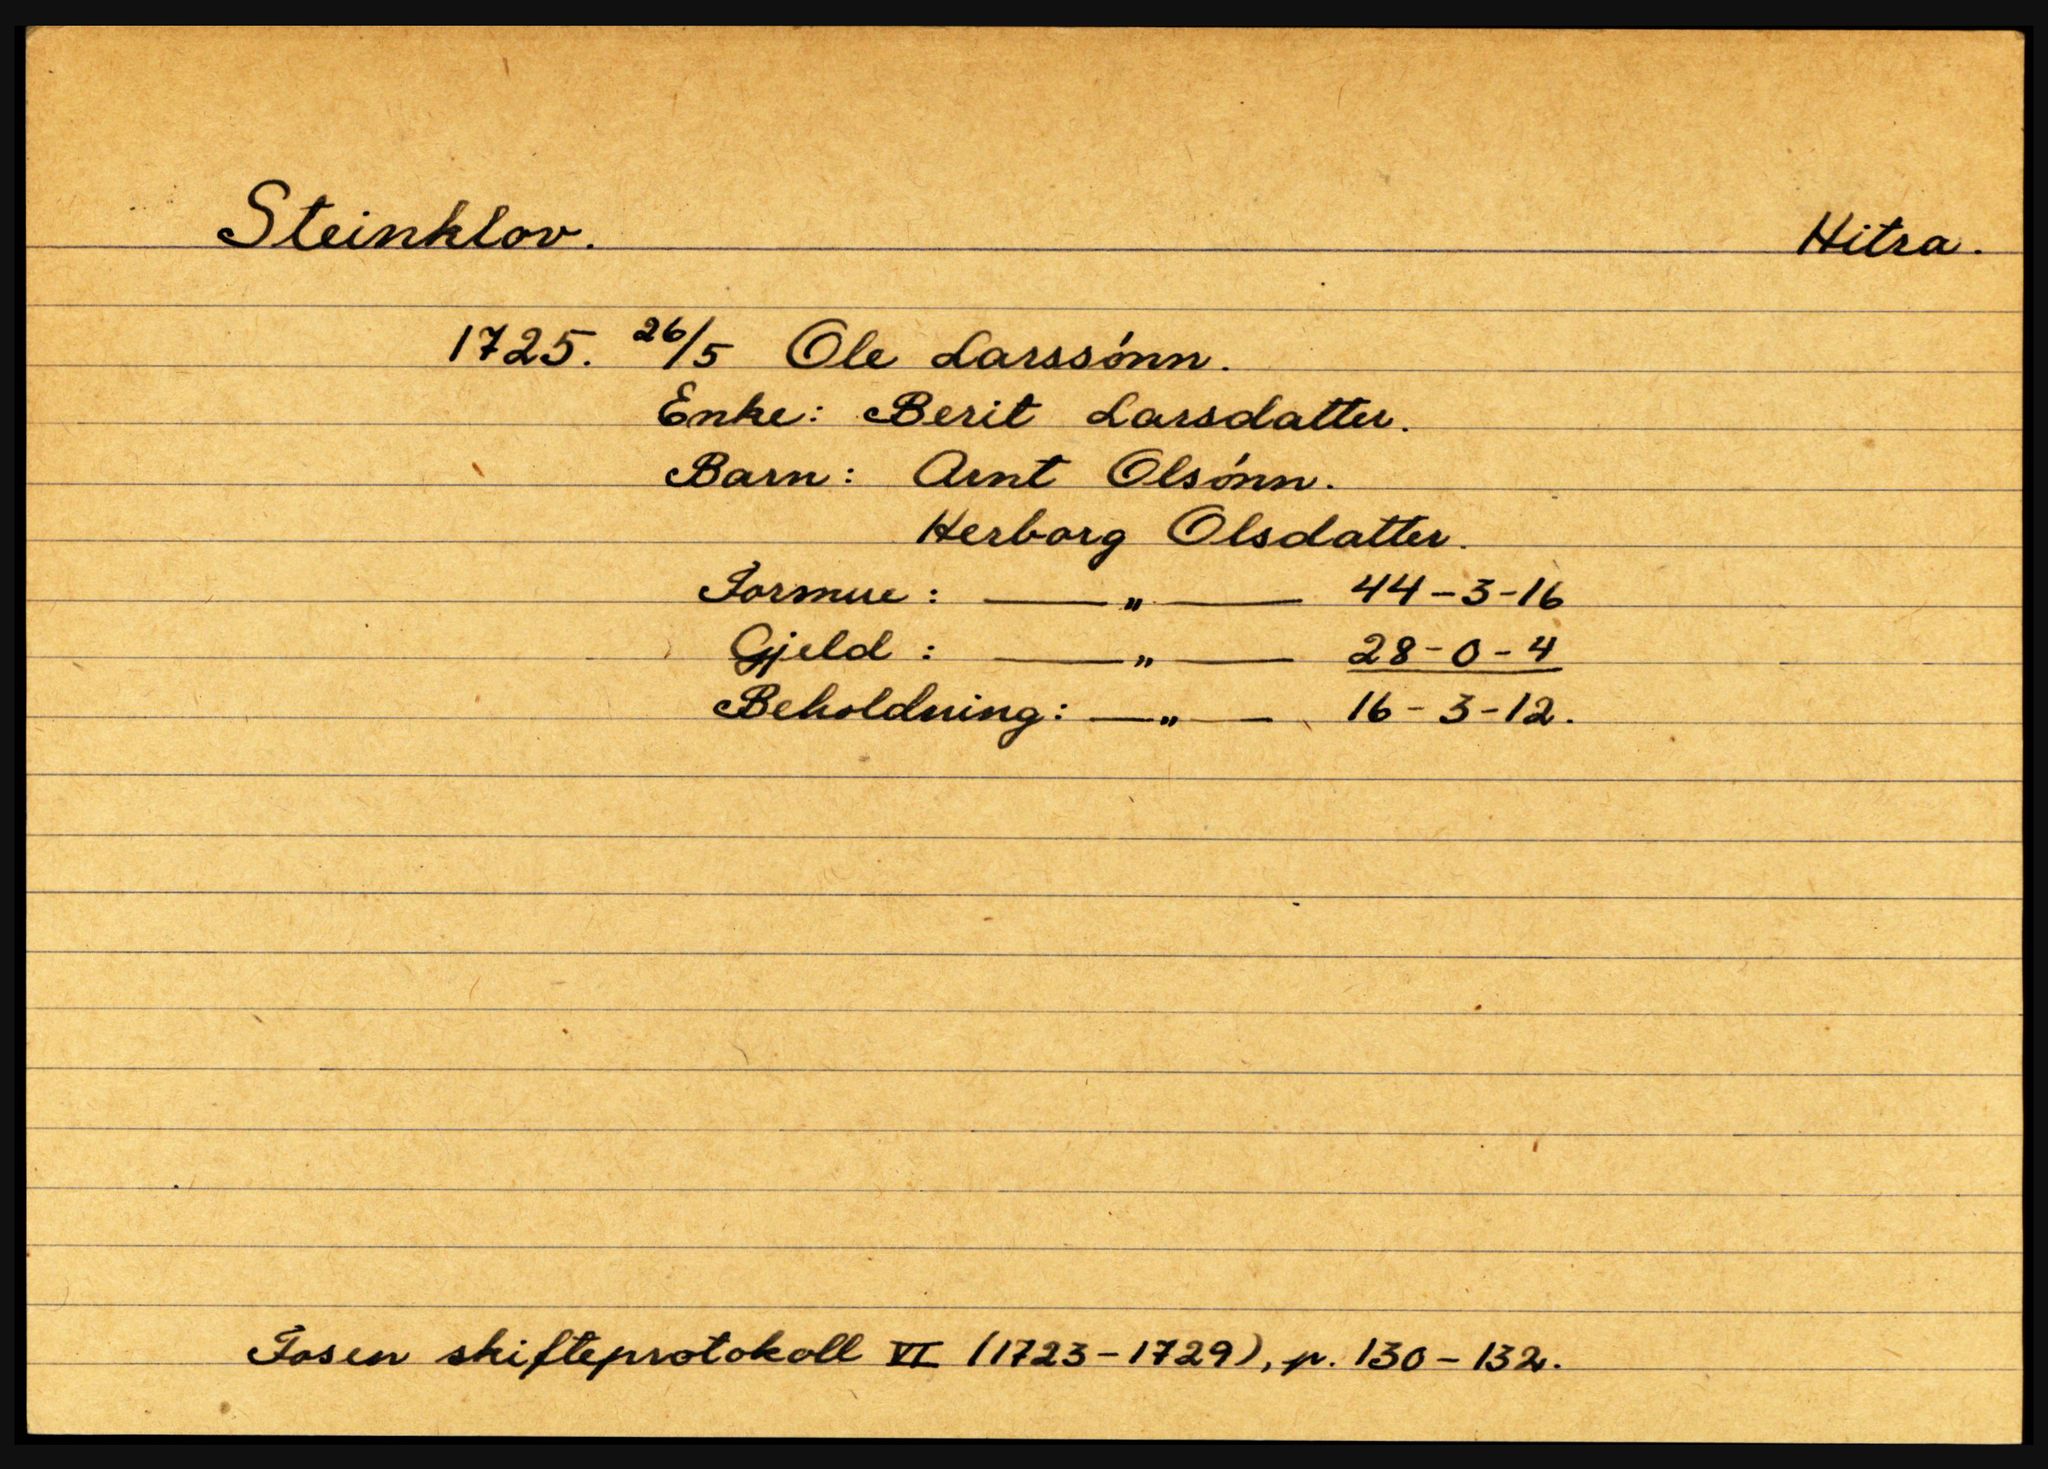 Steinklov. Hitra.
1725. 26/5 Ole Larssónn.
Enke: Berit Larsdatter.
Barn: Arnt Olsónn.
Herborg Olsdatter.
Formue: — " — 44-3-16
Gjeld: — " — 28-0-4
Beholdning: — " — 16-3-12.
Fosen skifteprotokoll VI (1723-1729), p. 130-132.